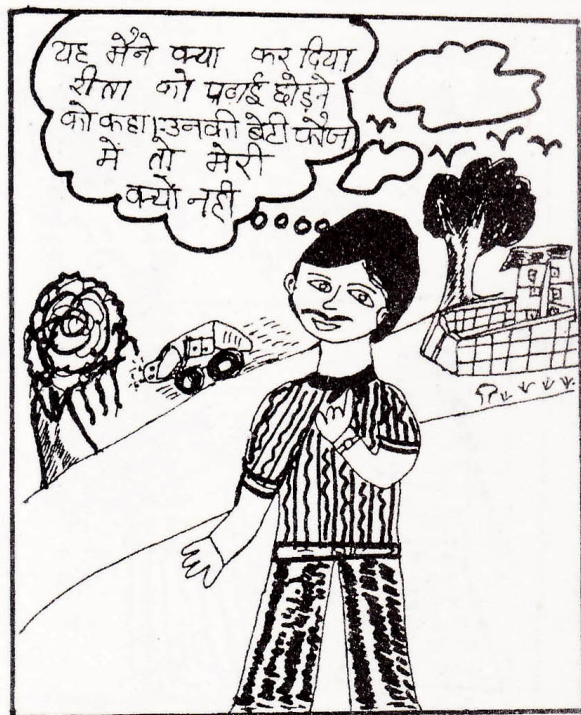 यह मैने क्या कर दिया
रीता को पढाई छोड़ने
को कहा। उनकी बेटी फौज
में तो मेरी
क्यों नही